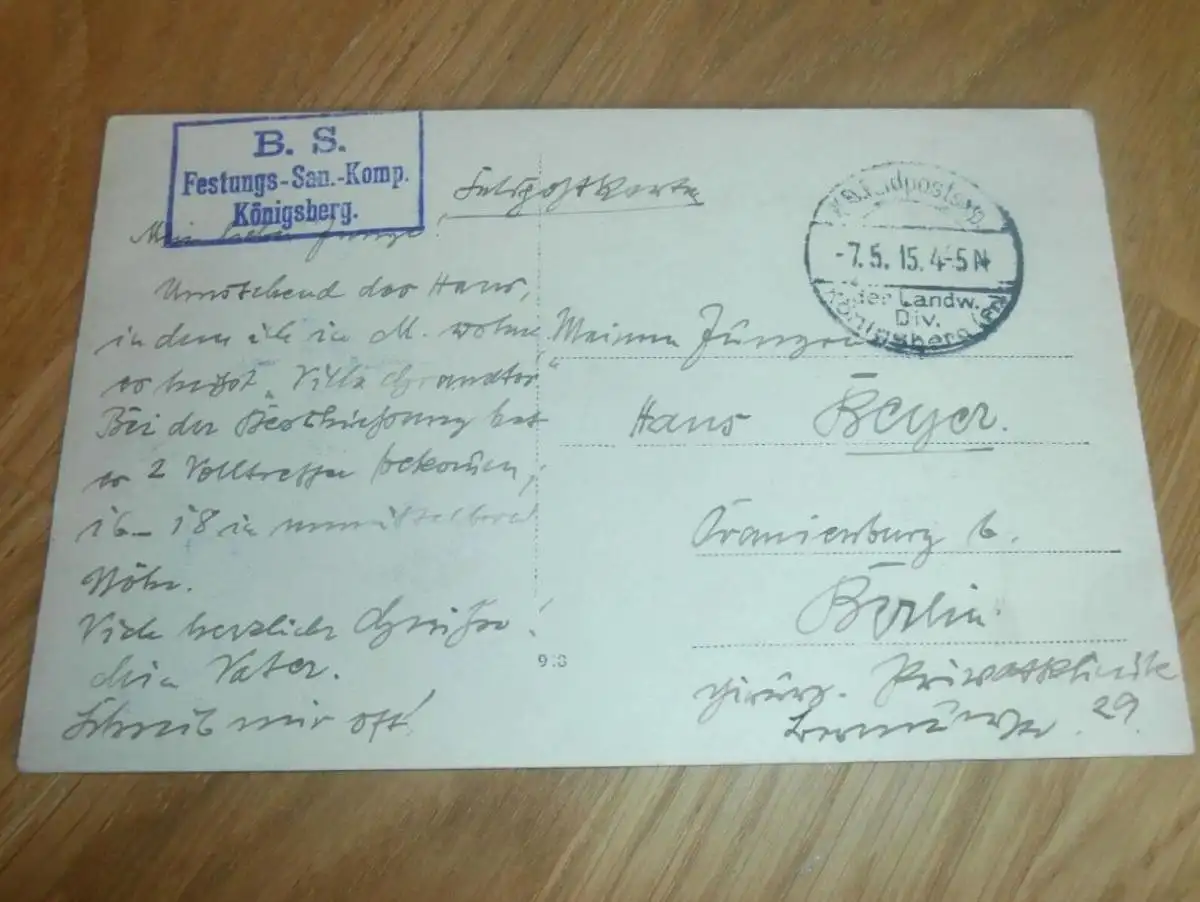 B. S.
Festungs-San.-Komp.
Königsberg.
Feldpostkarte
K.D. Feldpostexp.
-7.5.15.4-5N
der Landw.
Div.
Königsberg (Pr)
Mein lieber Junge!
Umstehend das Haus,
in dem ich in M. wohne
es heißt „Villa
Bei der Beschießung hat
es 2 Volltreffer bekommen,
16-18 in unmittelbarer
Nähe.
Viele herzliche Grüße!
dein Vater.
Schreib mir oft!
Meinem Jungen
Hans Beyer.
Oranienburg b.
Berlin.
Privatklinik
29.
918